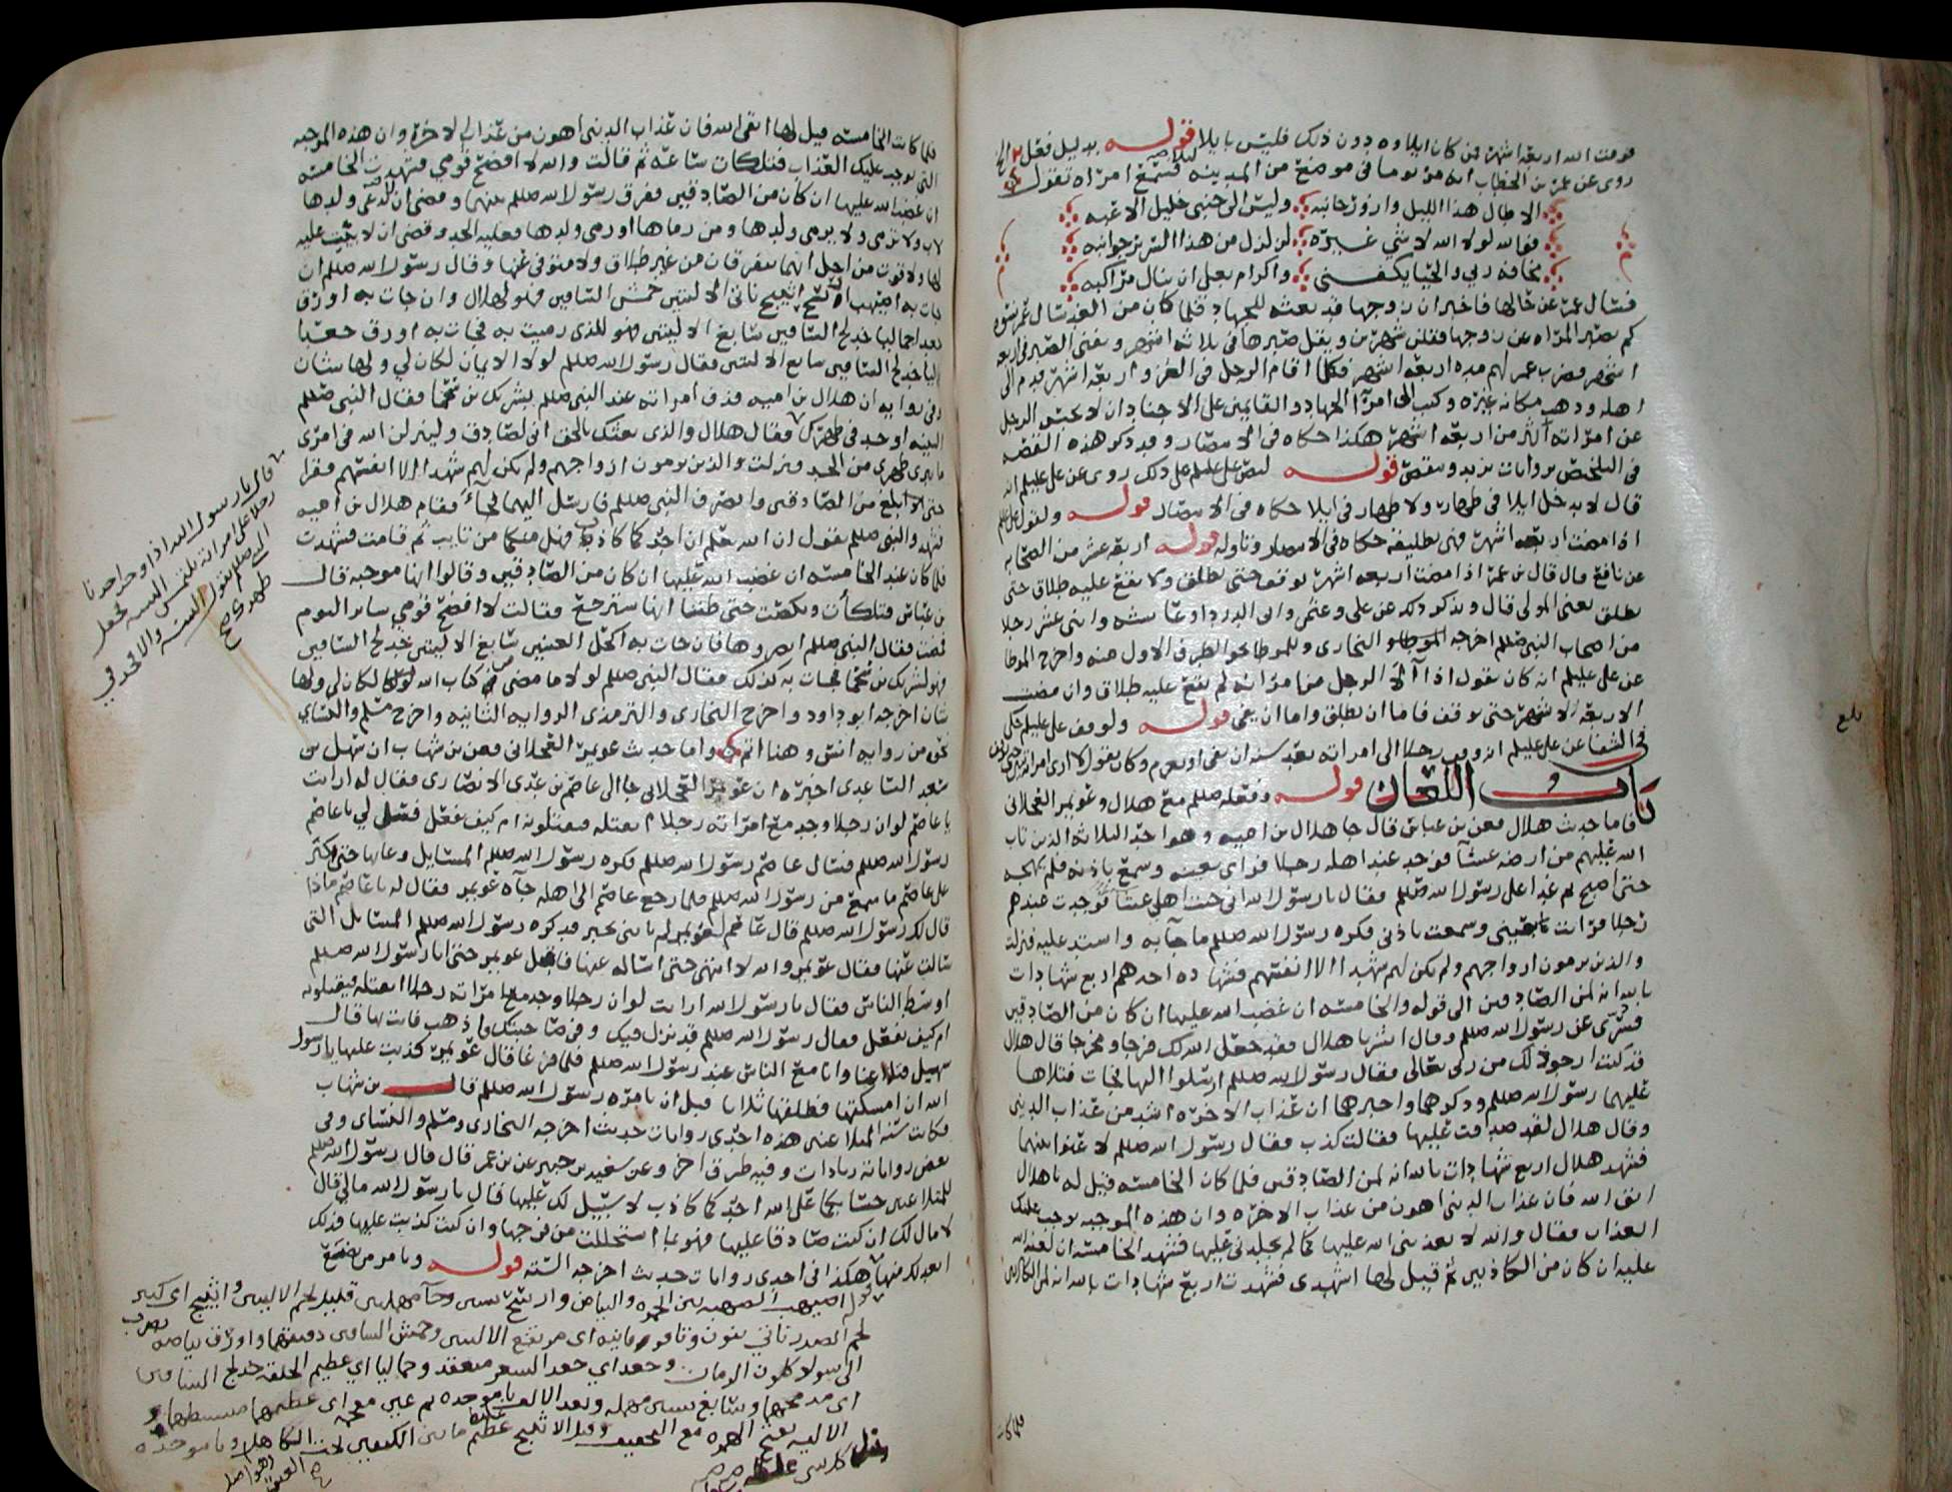 فوقت الله اربعة اشهر فمن كان ايلاوه دون ذلك فليس بايلا قوله بدليل فعل
روى عن عمر بن الخطاب انه مر يوما في موضع من المدينة فسمع امراة تقول
الا طال هذا الليل وازور جانبه وليس الى جنبي خليل الاعبه
فوالله لولا الله لا شي غيره لزلزل من هذا السرير جوانبه
مخافة ربي والحيا يكفني واكرام بعلي ان ينال مراكبه
فسال عمر عن حالها فاخبر ان زوجها قد بعثه للجهاد فلما كان من الغد سال عمر نسوة
كم تصبر المراة عن زوجها فقلن شهرين ويقل صبرها في ثلاثة اشهر ويفنى الصبر في اربعة
اشهر فضرب عمر لهم مدة اربعة اشهر فكلما اقام الرجل في الغزو اربعة اشهر قدم الى
اهله وذهب مكانه غيره وكتب الى امرآ الجهاد والقايمين على الاجناد ان لا يحبس الرجل
عن امراته اكثر من اربعة اشهر هكذا حكاه في الانتصار وقد ذكر هذه القصة
في التلخيص بروايات بزيد ونقص قوله لنص علي عليلم على ذلك روى عن علي عليلم انه
قال لا يدخل ايلا في ظهار ولا ظهار في ايلا حكاه في الانتصار قوله ولقول علي عليلم
اذا مضت اربعة اشهر فهي تطليقة حكاه في الانتصار وتاوله قوله اربعة عشر من الصحابة
عن نافع قال قال بن عمر اذا مضت اربعة اشهر يوقف حتى يطلق ولا يقع عليه طلاق حتى
يطلق يعني المولى قال ويذكر ذلك عن علي وعثمن وابي الدردا وعائشة واثني عشر رجلا
من اصحاب النبي صللم اخرجه البخاري وللموطا نحو الطرف الاول منه واخرج الموطا
عن علي عليلم انه كان يقول اذا آلى الرجل من امراته لم يقع عليه طلاق وان مضت
الاربعة الاشهر حتى يوقف فاما ان يطلق واما ان يفي قوله ولوقف علي عليلم حكى
في الشفا عن علي عليلم انه وقف رجلا الى امراته بعد سنة ان يفي او يعزم وكان يقول
باب اللعان قوله وفعله صللم مع هلال وعويمر العجلاني
فاما حديث هلال فعن بن عباس قال جا هلال بن امية وهو احد الثلاثة الذين تاب
الله عليهم من ارضه عشآ فوجد عند اهله رجلا فراى بعينه وسمع باذنه فلم يهجه
حتى اصبح ثم غدا على رسول الله صللم فقال يا رسول الله اني جئت اهلي عشآ فوجدت عندهم
رجلا فرايت بعيني وسمعت باذني فكره رسول الله صللم ما جآ به واشتد عليه فنزلت
والذين يرمون ازواجهم ولم يكن لهم شهدا الا انفسهم فشهادة احدهم اربع شهادات
بالله انه لمن الصادقين الى قوله والخامسة ان غضب الله عليها ان كان من الصادقين
فسري عن رسول الله صللم وقال ابشر يا هلال فقد جعل الله لك فرجا ومخرجا قال هلال
قد كنت ارجو ذلك من ربي تعالى فقال رسول الله صللم ارسلوا اليها فجات فتلاها
عليهما رسول الله صللم وذكرهما واخبرهما ان عذاب الاخرة اشد من عذاب الدنيا
وقال هلال لقد صدقت عليها فقالت كذب فقال رسول الله صللم لاعنوا بينهما
فشهد هلال اربع شهادات بالله انه لمن الصادقين فلما كان الخامسة قيل له يا هلال
اتق الله فان عذاب الدنيا اهون من عذاب الاخرة وان هذه الموجبة توجب عليك
العذاب فقال والله لا يعذبني الله عليها كما لم يجلدني عليها فشهد الخامسة ان لعنة الله
عليه ان كان من الكاذبين ثم قيل لها اشهدي فشهدت اربع شهادات بالله انه لمن الكاذبين
فلما كا
بلغ
فلما كانت الخامسة قيل لها اتقي الله فان عذاب الدنيا اهون من عذاب الاخرة وان هذه الموجبة
التي توجب عليك العذاب فتلكات ساعة ثم قالت والله لا افضح قومي فشهدت الخامسة
ان غضب الله عليها ان كان من الصادقين ففرق رسول الله صللم بينهما وقضى ان لا يدعى ولدها
لاب ولا ترمى ولا يرمى ولدها ومن رماها او رمى ولدها فعليه الحد وقضى ان لا بيت عليه
لها ولا قوت من اجل انهما يتفرقان من غير طلاق ولا متوفى عنها وقال رسول الله صللم ان
جات به اصيهب اريسح اثيبج ناتي الاليتين حمش الساقين فهو لهلال وان جات به اورق
جعدا جماليا خدلج الساقين سابغ الاليتين فهو للذي رميت به فجات به اورق جعدا
جماليا خدلج الساقين سابغ الاليتين فقال رسول الله صللم لولا الايمان لكان لي ولها شان
وفي رواية ان هلال بن امية قذف امراته عند النبي صللم بشريك بن سحما فقال النبي صللم
البينة او حد في ظهرك فقال هلال والذي بعثك بالحق اني لصادق ولينزلن الله في امري
ما يبرئ ظهري من الحد فنزلت والذين يرمون ازواجهم ولم يكن لهم شهدا الا انفسهم فقرا
حتى بلغ من الصادقين وانصرف النبي صللم فارسل اليهما فجآء فقام هلال بن امية
فشهد والنبي صللم يقول ان الله يعلم ان احدكما كاذب فهل منكما من تايب ثم قامت فشهدت
فلما كان عند الخامسة ان غضب الله عليها ان كان من الصادقين وقالوا انها موجبة قال
بن عباس فتلكأت ونكصت حتى ظننا انها سترجع فقالت لا افضح قومي ساير اليوم
فمضت فقال النبي صللم ابصروها فان جات به اكحل العينين سابغ الاليتين خدلج الساقين
فهو لشريك بن سحما فجات به كذلك فقال النبي صللم لولا ما مضى من كتاب الله لكان لي ولها
شان اخرجه ابو داود واخرج البخاري والترمذي الرواية الثانية واخرج مسلم والنسائي
نحوه من رواية انس وهنا اتم واما حديث عويمر العجلاني فعن بن شهاب ان سهل بن
سعد الساعدي اخبره ان عويمر العجلاني جا الى عاصم بن عدي الانصاري فقال له ارايت
يا عاصم لو ان رجلا وجد مع امراته رجلا ايقتله فتقتلونه ام كيف يفعل فسل لي يا عاصم
رسول الله صللم فسال عاصم رسول الله صللم فكره رسول الله صللم المسايل وعابها حتى كثر
على عاصم ما سمع من رسول الله صللم فلما رجع عاصم الى اهله جآه عويمر فقال له يا عاصم ماذا
قال لك رسول الله صللم قال عاصم لعويمر لم تاتني بخير قد كره رسول الله صللم المسايل التي
سالت عنها فقال عويمر والله لا انتهي حتى اساله عنها فاقبل عويمر حتى اتا رسول الله صللم
اوسط الناس فقال يا رسول الله ارايت لو ان رجلا وجد مع امراته رجلا ايقتله فيقتلونه
ام كيف يفعل فقال رسول الله صللم قد نزل فيك وفي صاحبتك فاذهب فات بها قال
سهل فتلاعنا وانا مع الناس عند رسول الله صللم فلما فرغا قال عويمر كذبت عليها يا رسول
الله ان امسكتها فطلقها ثلاثا قبل ان يامره رسول الله صللم قال بن شهاب
فكانت سنة المتلاعنين هذه احدى روايات حديث اخرجه البخاري ومسلم والنسائي وفي
بعض رواياته زيادات وفيه طرق اخر وعن سعيد بن جبير عن بن عمر قال قال رسول الله صللم
للمتلاعنين حسابكما على الله احدكما كاذب لا سبيل لك عليها قال يا رسول الله مالي قال
لا مال لك ان كنت صادقا عليها فهو بما استحللت من فرجها وان كنت كذبت عليها فذلك
ابعد لك منها هكذا في احدى روايات حديث اخرجه الستة قوله
قال يا رسول الله اذا وجد احدنا
رجلا على امراته يلتمس البينة فجعل
النبي صللم يقول البينة والا حد في
ظهرك صح